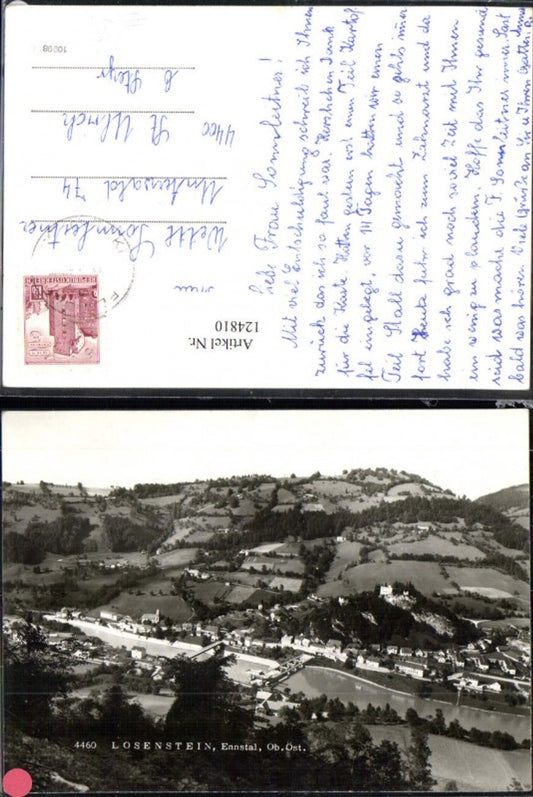 Liebe Frau Sonnleitner!
Mit viel Entschuldigung schreib ich Ihnen
zurück das ich so faul war. Herzlichen Dank
für die Karte. Hatten gestern erst einen Teil Kartof
fel eingelegt, vor 14 Tagen hatten wir einen
Teil Stall dazu gemacht und so gehts imer
fort Heute fuhr ich zum Zahnarzt und da
habe ich grad noch so viel Zeit mit Ihnen
ein wenig zu plaudern. Hoffe das Ihr gesund
seid was macht die F. Sonnleitner imer. Last
bald was hören Viele Grüße an Sie u Ihren Gatten
Sonnleitner
Unterwald 74
4400 St Ulrich
b Steyr
10908
REPUBLIK ÖSTERREICH
Artikel Nr.
124810
4460 LOSENSTEIN, Ennstal, Ob. Öst.